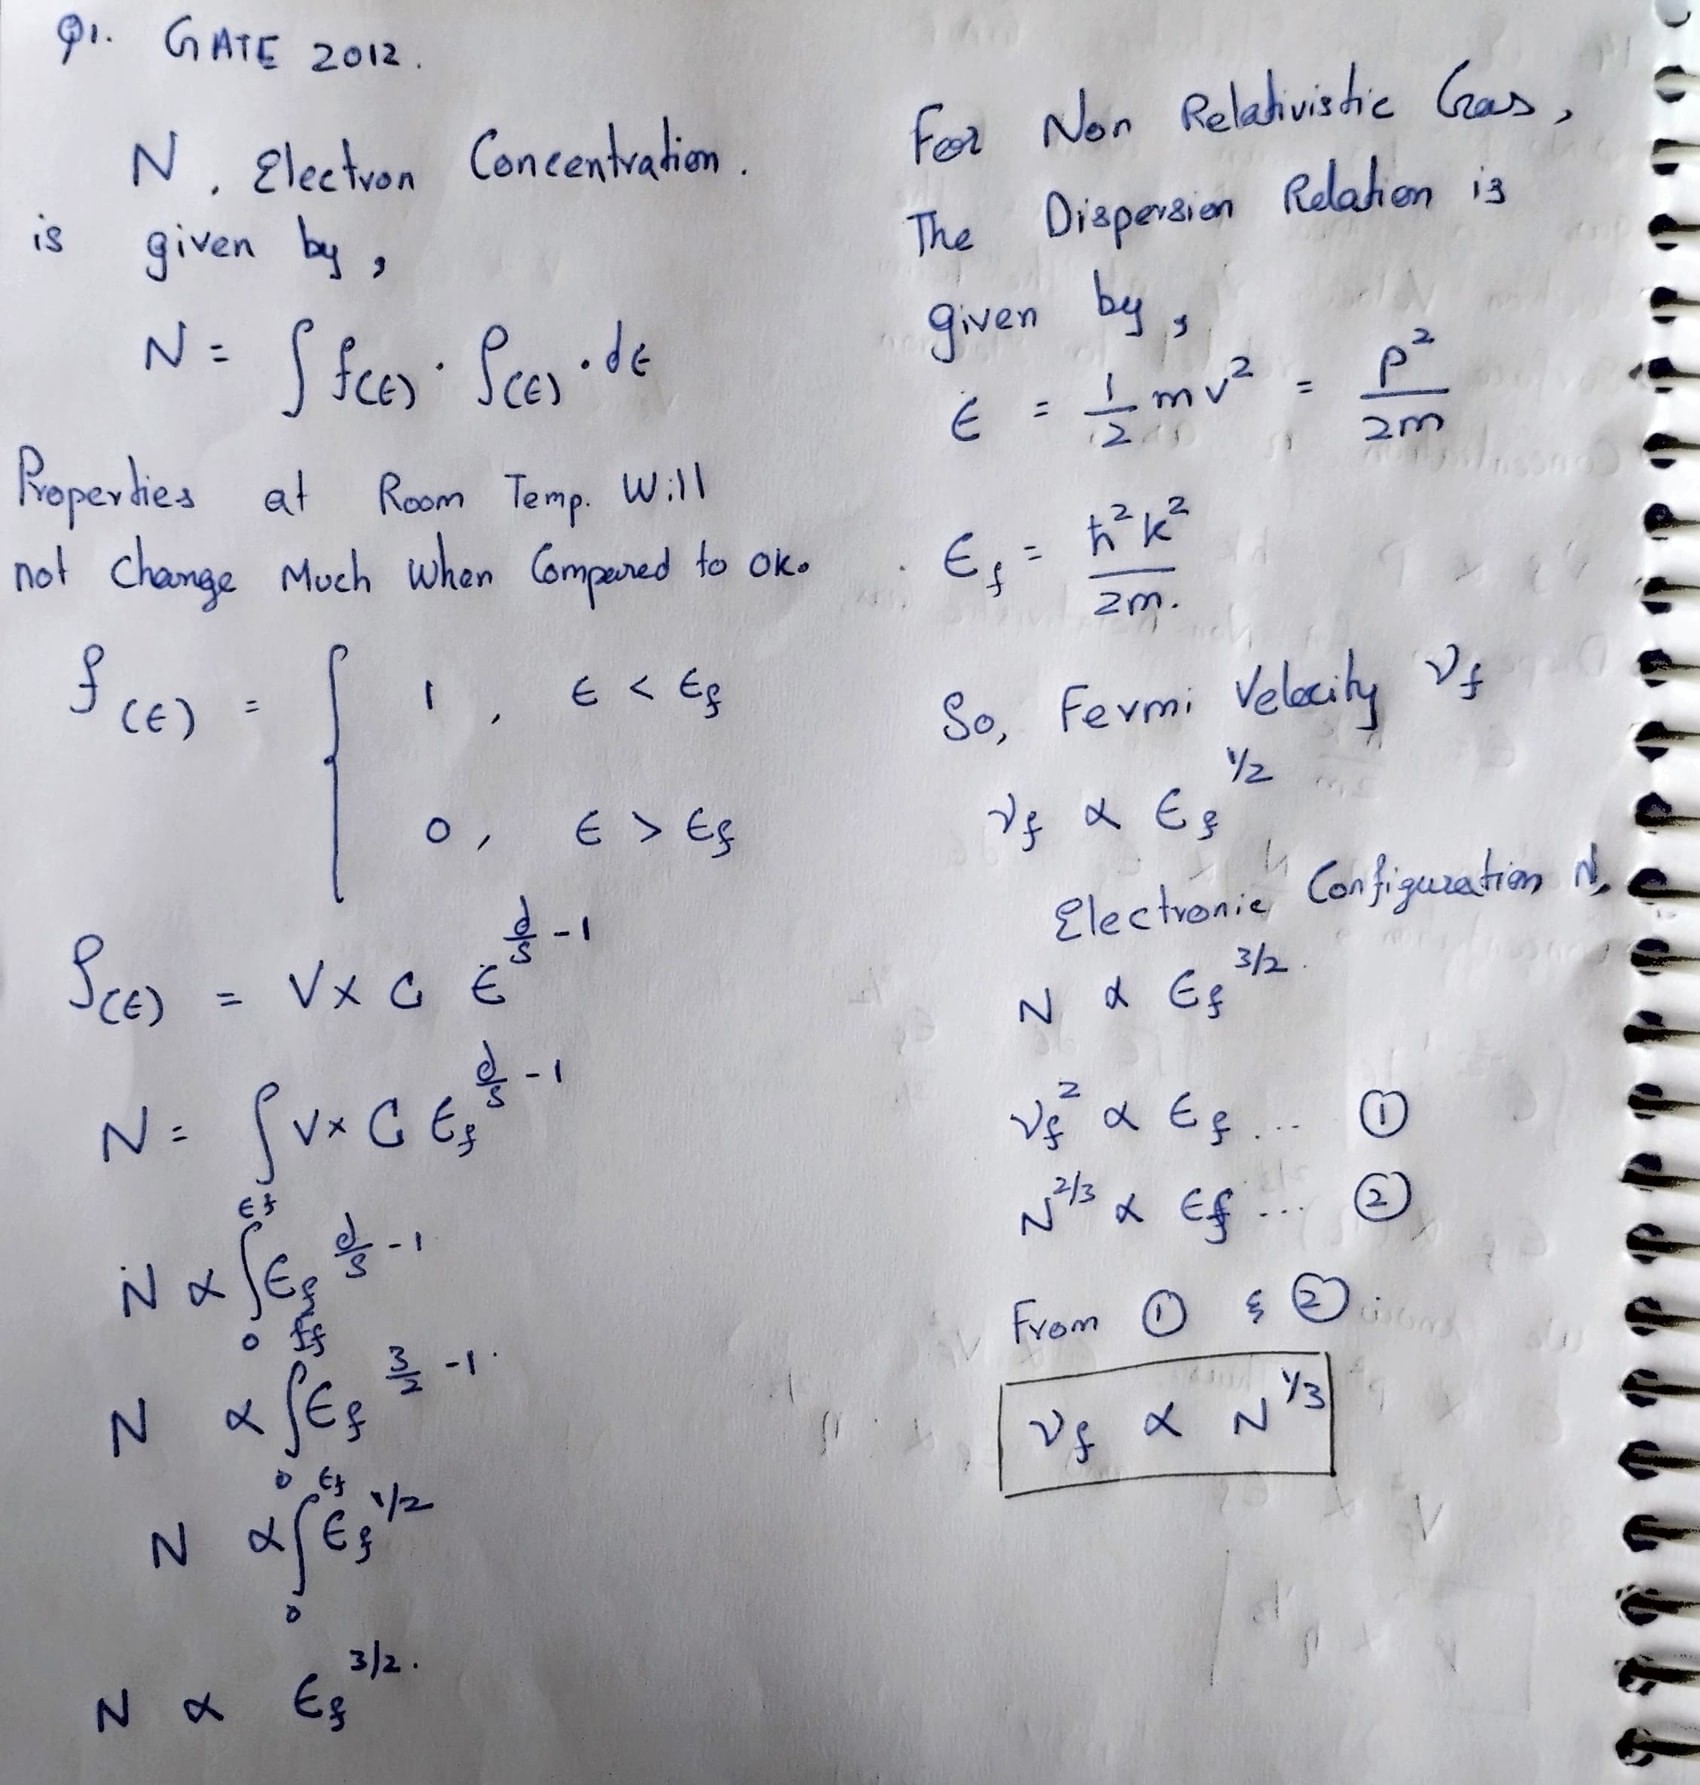 Q1. GATE 2012.
N, Electron Concentration.
is given by,
N = ∫ f(ϵ) · ρ(ϵ) · dϵ
Properties at Room Temp. Will
not Change Much When Compared to 0K.
f(ϵ) = { 1, ϵ < ϵf
0, ϵ > ϵf
ρ(ϵ) = V x C ϵ^(d/s - 1)
N = ∫ V x C ϵf^(d/s - 1)
N ∝ ∫₀^ϵf ϵf^(d/s - 1)
N ∝ ∫₀^ϵf ϵf^(3/2 - 1)
N ∝ ∫₀^ϵf ϵf^(1/2)
N ∝ ϵf^(3/2).
For Non Relativistic Gas,
The Dispersion Relation is
given by,
ϵ = 1/2 mv² = p²/2m
ϵf = ħ²k²/2m.
So, Fermi Velocity νf
νf ∝ ϵf^(1/2)
Electronic Configuration N,
N ∝ ϵf^(3/2).
νf² ∝ ϵf ... ①
N^(2/3) ∝ ϵf ... ②
From ① & ②
νf ∝ N^(1/3)